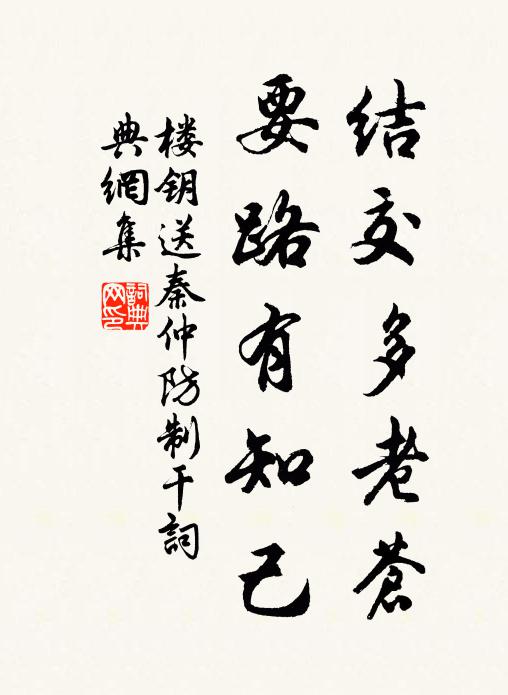 结交多老苍
要路有知己
楼钥送秦仲防制干詞
典網集
詞典网印